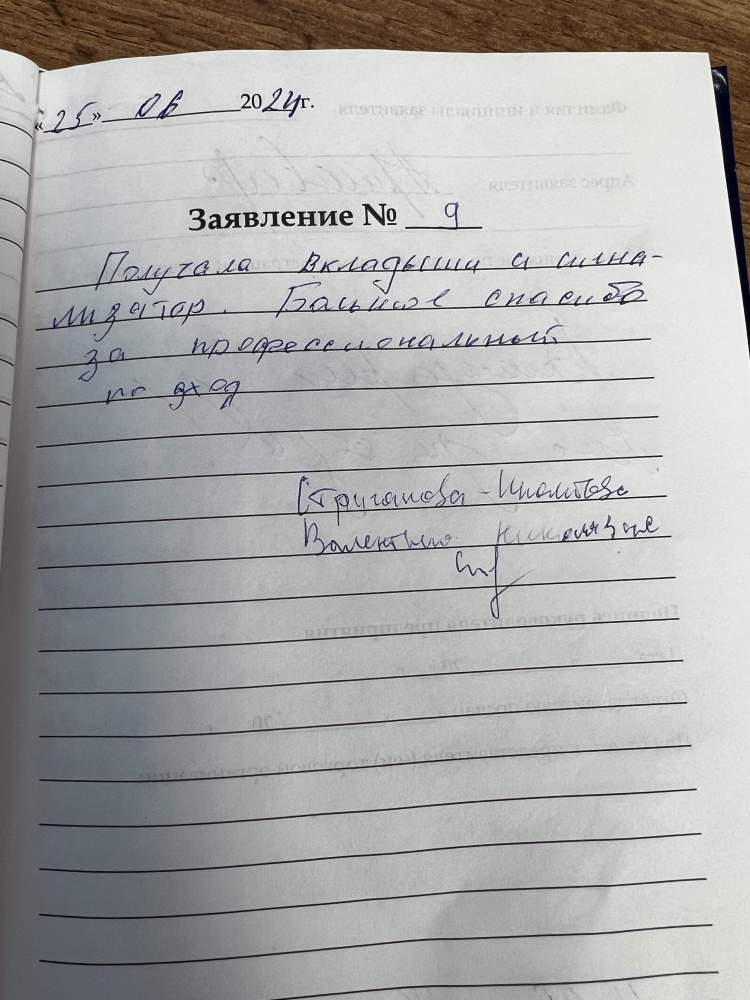 «25» 06 2024г.
Заявление № 9
Получала вкладыши и сигна-
лизатор. Большое спасибо
за профессиональный
подход
Строганова-
Валентина Николаевна